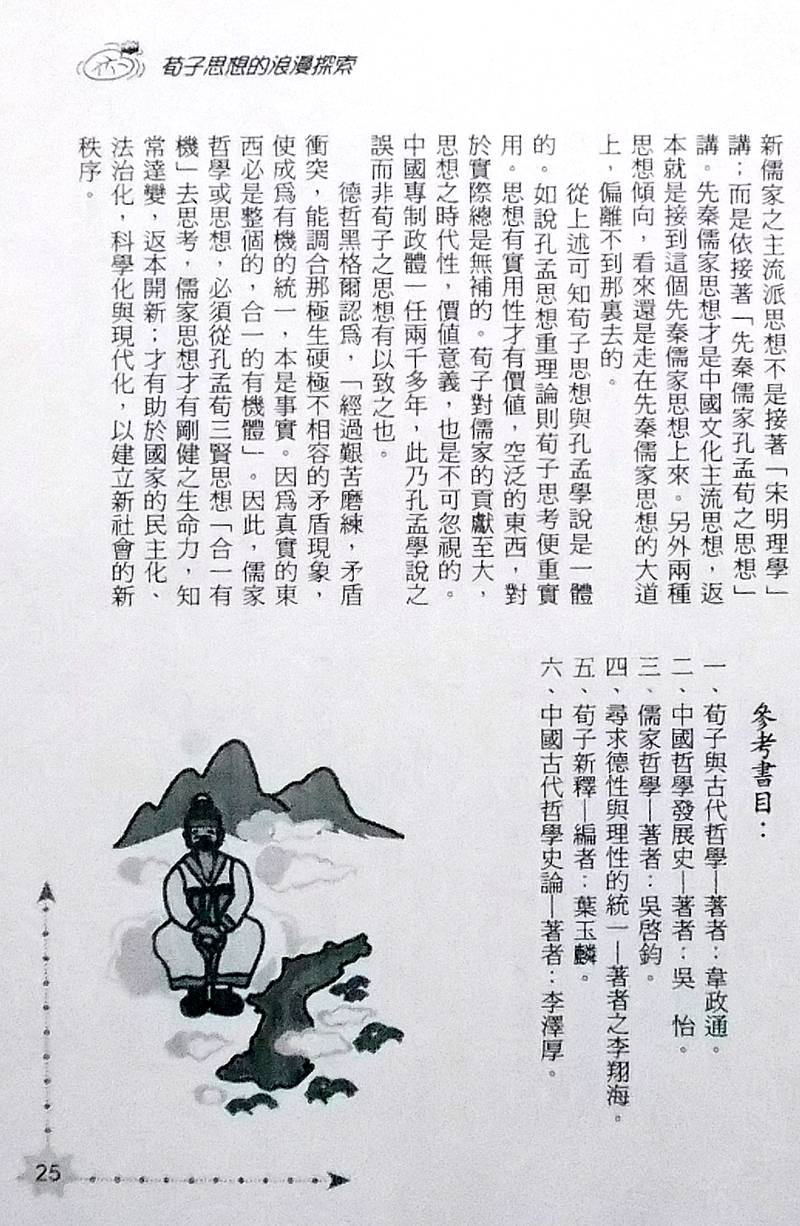 荀子思想的浪漫探索
新儒家之主流派思想不是接著「宋明理學」
講；而是依接著「先秦儒家孔孟荀之思想」
講。先秦儒家思想才是中國文化主流思想，返
本就是接到這個先秦儒家思想上來。另外兩種
思想傾向，看來還是走在先秦儒家思想的大道
上，偏離不到那裏去的。
從上述可知荀子思想與孔孟學說是一體
的。如說孔孟思想重理論則荀子思考便重實
用。思想有實用性才有價值，空泛的東西，對
於實際總是無補的。荀子對儒家的貢獻至大，
思想之時代性，價值意義，也是不可忽視的。
中國專制政體一任兩千多年，此乃孔孟學說之
誤而非荀子之思想有以致之也。
德哲黑格爾認爲，「經過艱苦磨練，矛盾
衝突，能調合那極生硬極不相容的矛盾現象，
使成爲有機的統一，本是事實。因爲真實的東
西必是整個的，合一的有機體」。因此，儒家
哲學或思想，必須從孔孟荀三賢思想「合一有
機」去思考，儒家思想才有剛健之生命力，知
常達變，返本開新；才有助於國家的民主化、
法治化，科學化與現代化，以建立新社會的新
秩序。
參考書目：
一、荀子與古代哲學—著者：韋政通。
二、中國哲學發展史—著者：吳　怡。
三、儒家哲學—著者：吳啓鈞。
四、尋求德性與理性的統一—著者之李翔海。
五、荀子新釋—編者：葉玉麟。
六、中國古代哲學史論—著者：李澤厚。
25